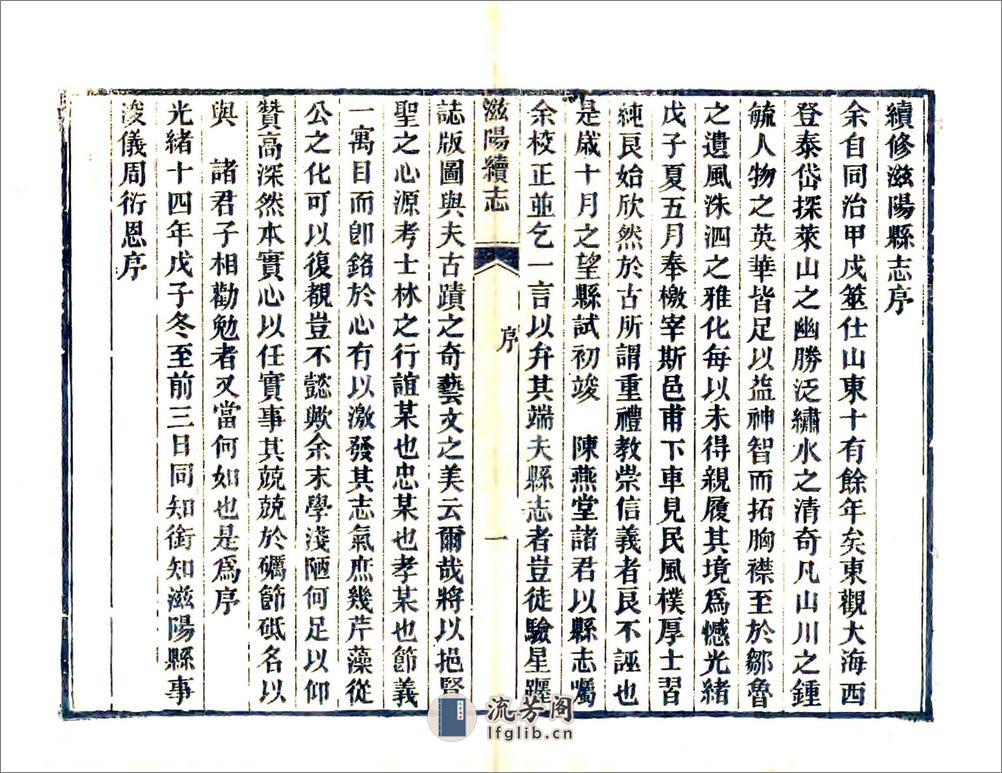 續修滋陽縣志序
余自同治甲戍筮仕山東十有餘年矣東觀大海西
登泰岱探萊山之幽勝泛繡水之清奇凡山川之鍾
毓人物之英華皆足以益神智而拓胸襟至於鄒魯
之遺風洙泗之雅化每以未得親履其境爲憾光緒
戊子夏五月奉檄宰斯邑甫下車見民風樸厚士習
純良始欣然於古所謂重禮教崇信義者良不誣也
是歲十月之望縣試初竣 陳燕堂諸君以縣志屬
余校正並乞一言以弁其端夫縣志者豈徒驗星躔
滋陽續志 序 一
誌版圖與夫古蹟之奇藝文之美云爾哉將以挹賢
聖之心源考士林之行誼某也忠某也孝某也節義
一寓目而卽銘於心有以激發其志氣庶幾芹藻從
公之化可以復覩豈不懿歟余末學淺陋何足以仰
贊高深然本實心以任實事其兢兢於礪節砥名以
與 諸君子相勸勉者又當何如也是爲序
光緒十四年戊子冬至前三日同知銜知滋陽縣事
浚儀周衍恩序
流芳阁
lfglib.cn